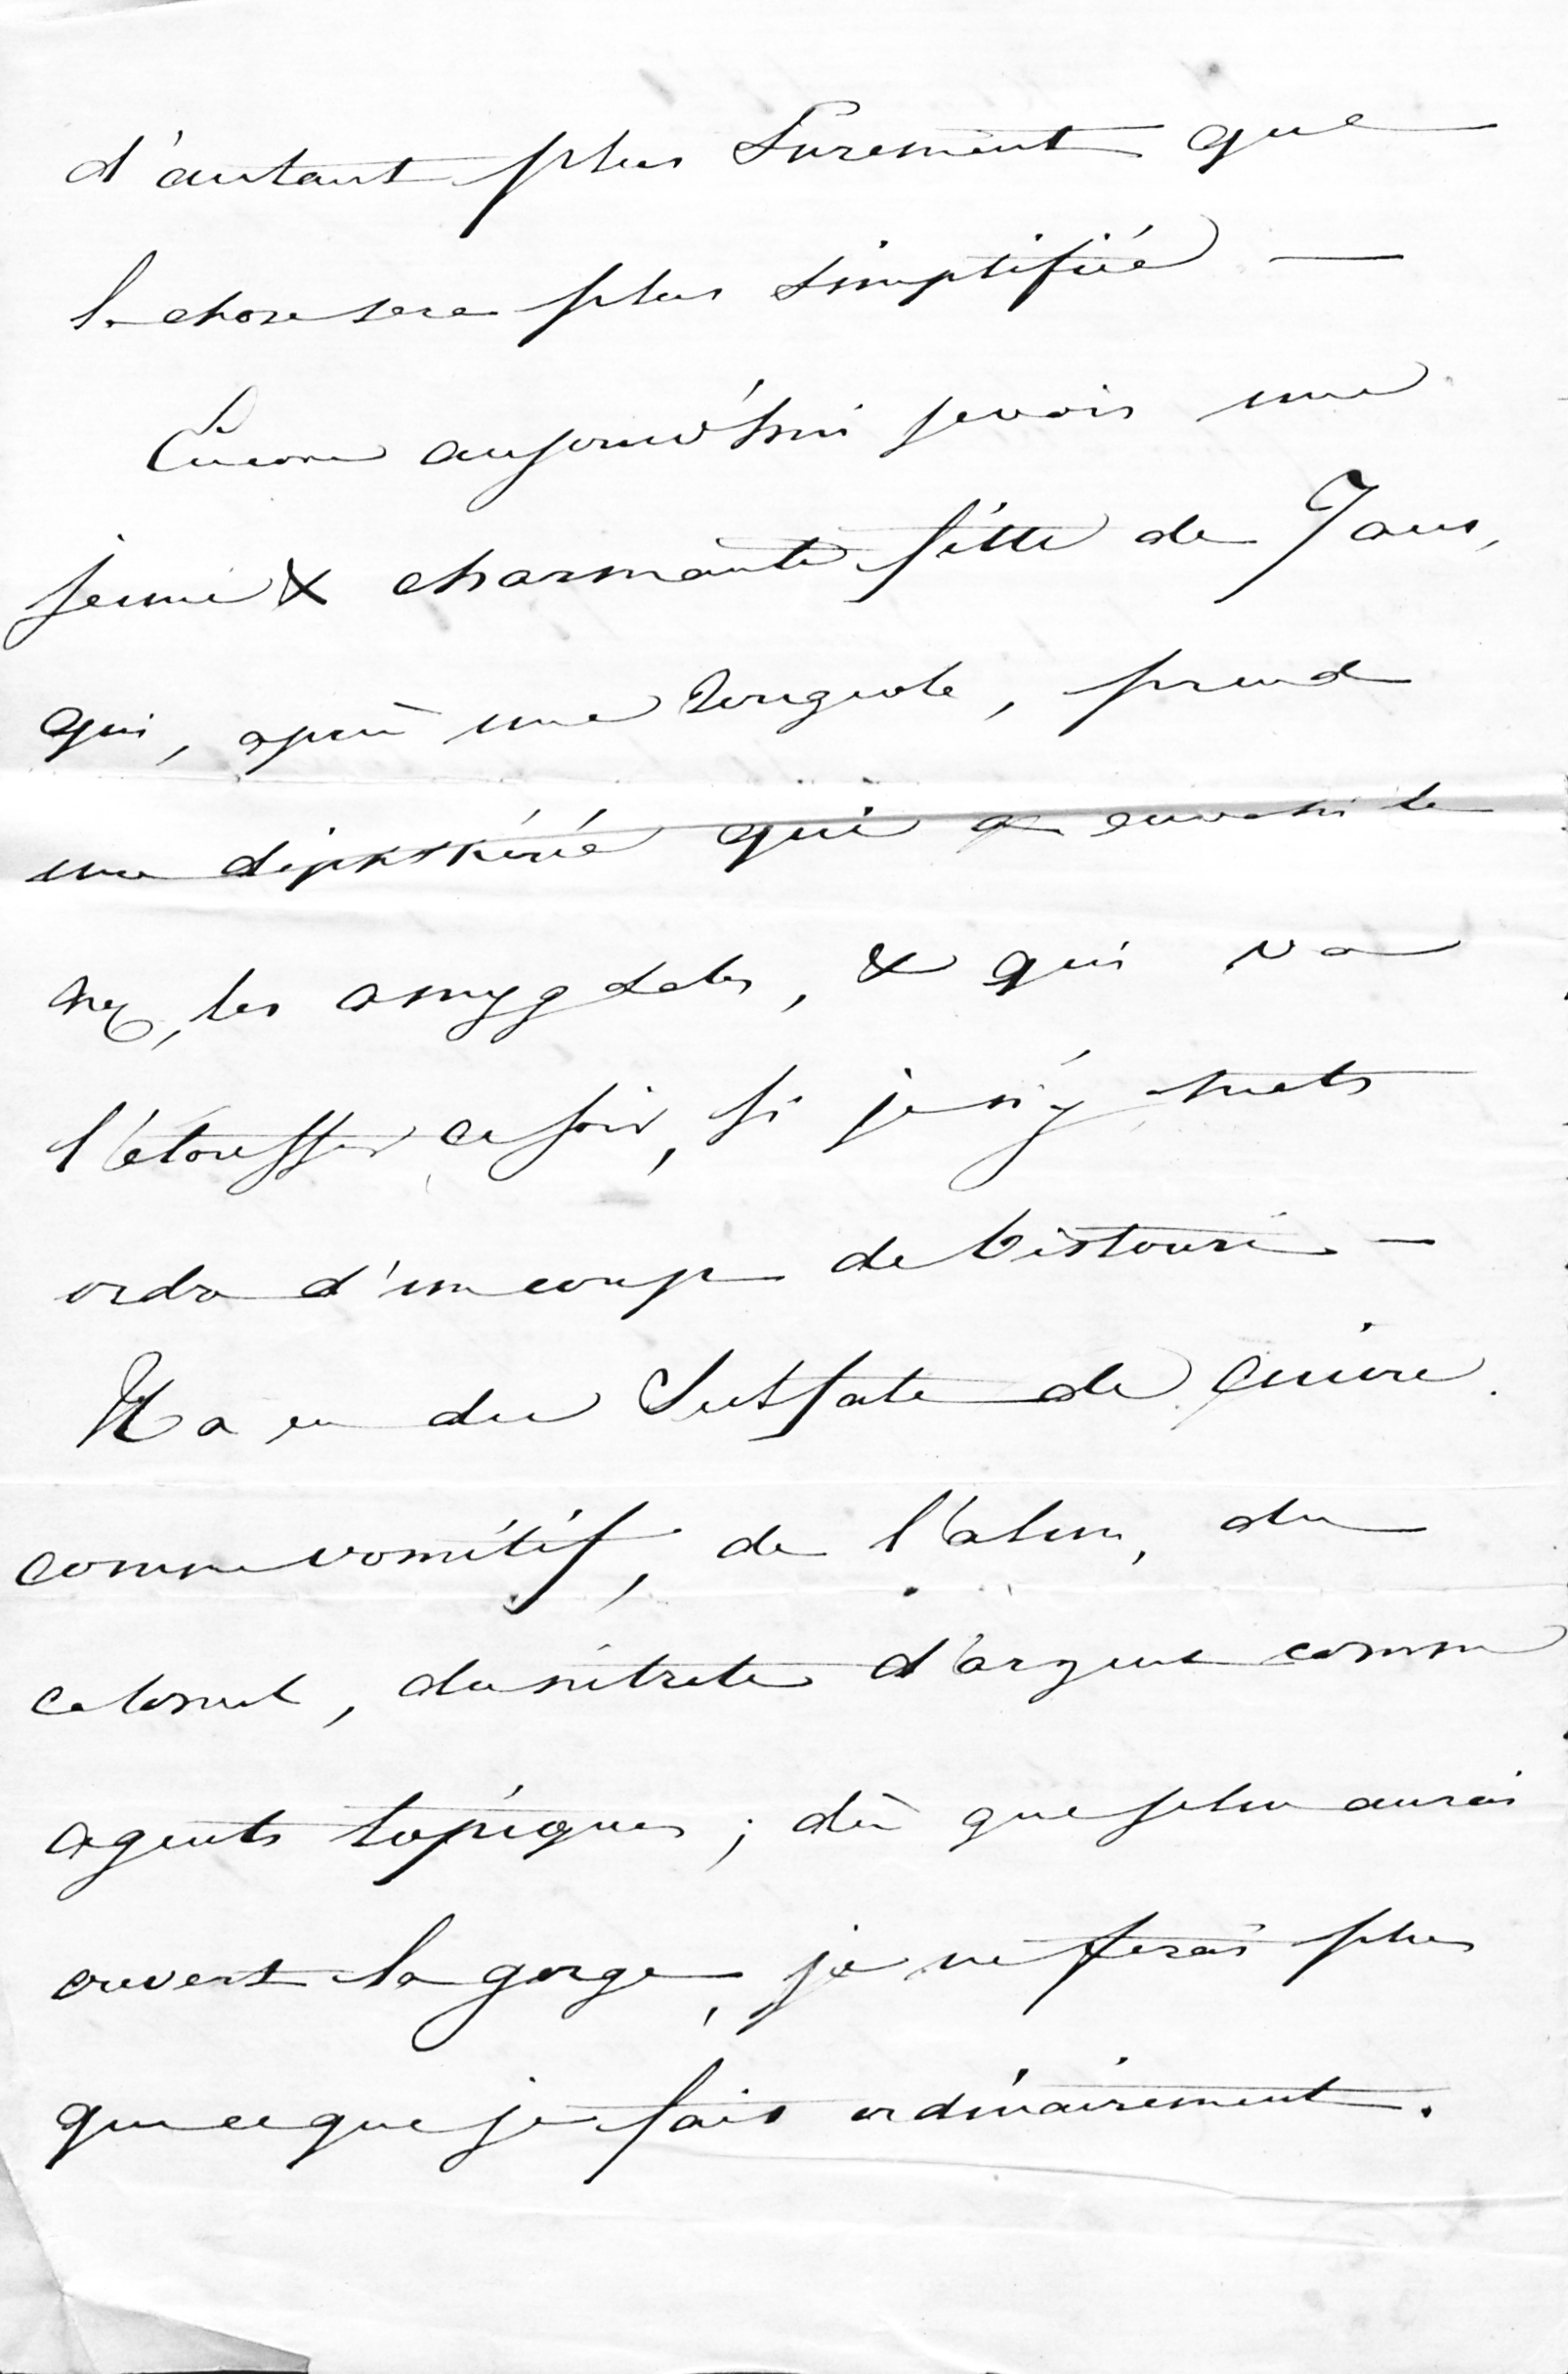 d'autant plus surement que
la chose sera plus simplifiée —
Encore aujourd'hui je vois une
jeune & charmante fille de 7 ans,
qui, après une rougeole, prend
une diphthérie qui a envahi le
nez, les amygdales, & qui va
l'étouffer ce soir, si je n'y mets
ordre d'un coup de bistouri —
Il a eu du Sulfate de cuivre
comme vomitif, de l'alun, du
calomel, du nitrate d'argent comme
agents topiques ; dès que je lui aurai
ouvert la gorge, je ne ferai plus
que ce que je fais ordinairement.